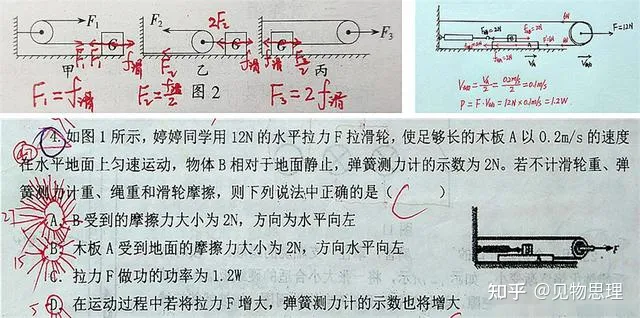 F₁
G
F₁
F₁
f滑
甲
F₁=f滑
F₂
2F₂
G
f滑
F₂
乙
F₂=f滑/2
图2
G
F₃
f滑
F₃/2
丙
F₃=2f滑
F=12N
6N
6N
f地A=2N
V_A
V动
V动=V_A/2=0.2m/s/2=0.1m/s
P=F·V动=12N×0.1m/s=1.2W.
4.如图1所示,婷婷同学用12N的水平拉力F拉滑轮,使足够长的木板A以0.2m/s的速度
在水平地面上匀速运动,物体B相对于地面静止,弹簧测力计的示数为2N。若不计滑轮重、弹
簧测力计重、绳重和滑轮摩擦,则下列说法中正确的是( C )
27
A.B受到的摩擦力大小为2N,方向为水平向左
15
B.木板A受到地面的摩擦力大小为2N,方向水平向左
C.拉力F做功的功率为1.2W
5
D.在运动过程中若将拉力F增大,弹簧测力计的示数也将增大
B
F
知乎 @见物思理